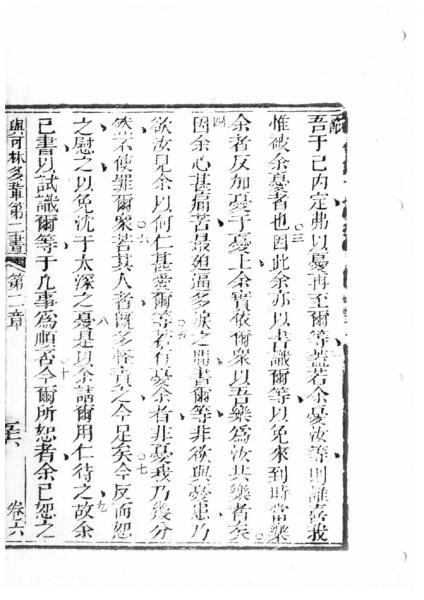 吾于己内定弗以憂再至爾等蓋若余憂汝等則誰喜我
惟被余憂者也因此余亦以書識爾等以免來到時當樂
余者反加憂于憂上余實依爾衆以吾樂為汝共樂者矣
四因余心甚痛苦最廹逼多淚之間書爾等非欲與憂患乃
欲汝見余以何仁甚愛爾等若有憂余者非憂我乃幾分
然不使罪爾衆若其人者旣多怪責之今足矣今反而恕
之慰之以免沈于太深之憂是以余請爾用仁待之故余
已書以試識爾等于凡事為順否今爾所恕者余已恕之
與可林多輩第二書 第二章 卷六